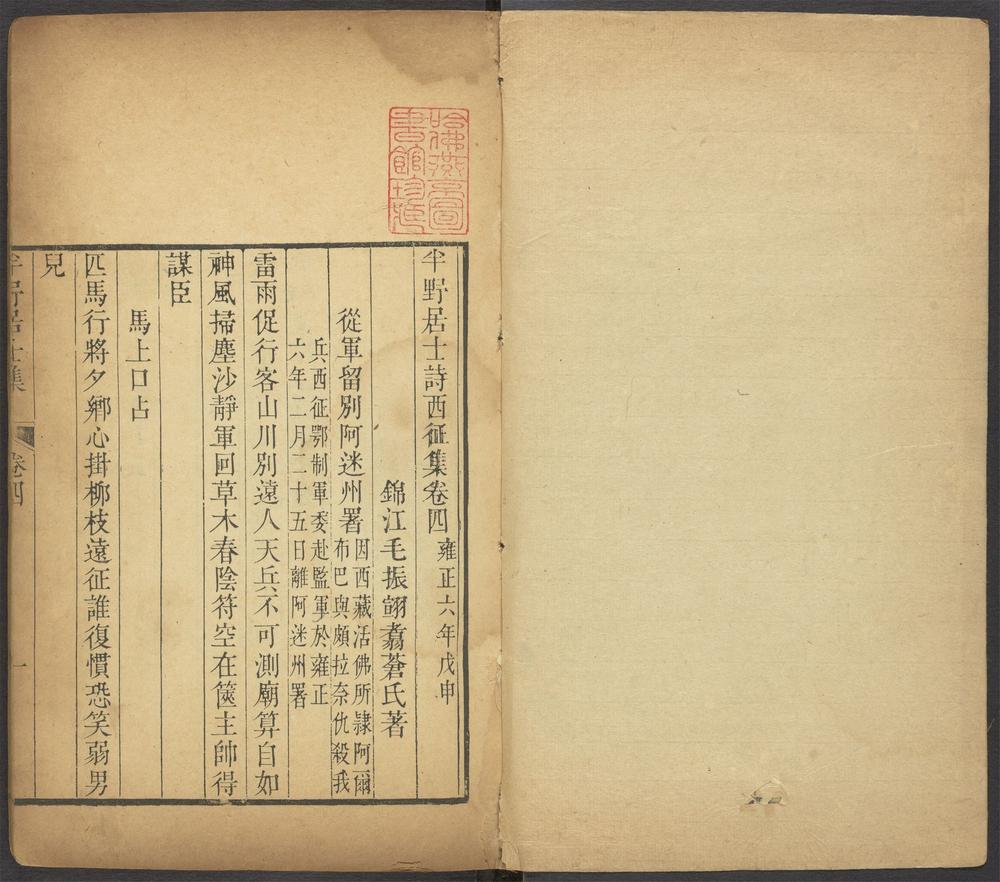 哈佛燕京圖
書館珍藏
半野居士詩西征集卷四 雍正六年戊申
錦江毛振翧翥蒼氏著
從軍留別阿迷州署 因西藏活佛所隸阿爾
布巴與頗拉奈仇殺我
兵西征鄂制軍委赴監軍於雍正
六年二月二十五日離阿迷州署
雷雨促行客山川別遠人天兵不可測廟算自如
神風掃塵沙靜軍回草木春陰符空在篋主帥得
謀臣
馬上口占
匹馬行將夕鄉心掛柳枝遠征誰復慣恐笑弱男
兒
半野居士集 卷四 一